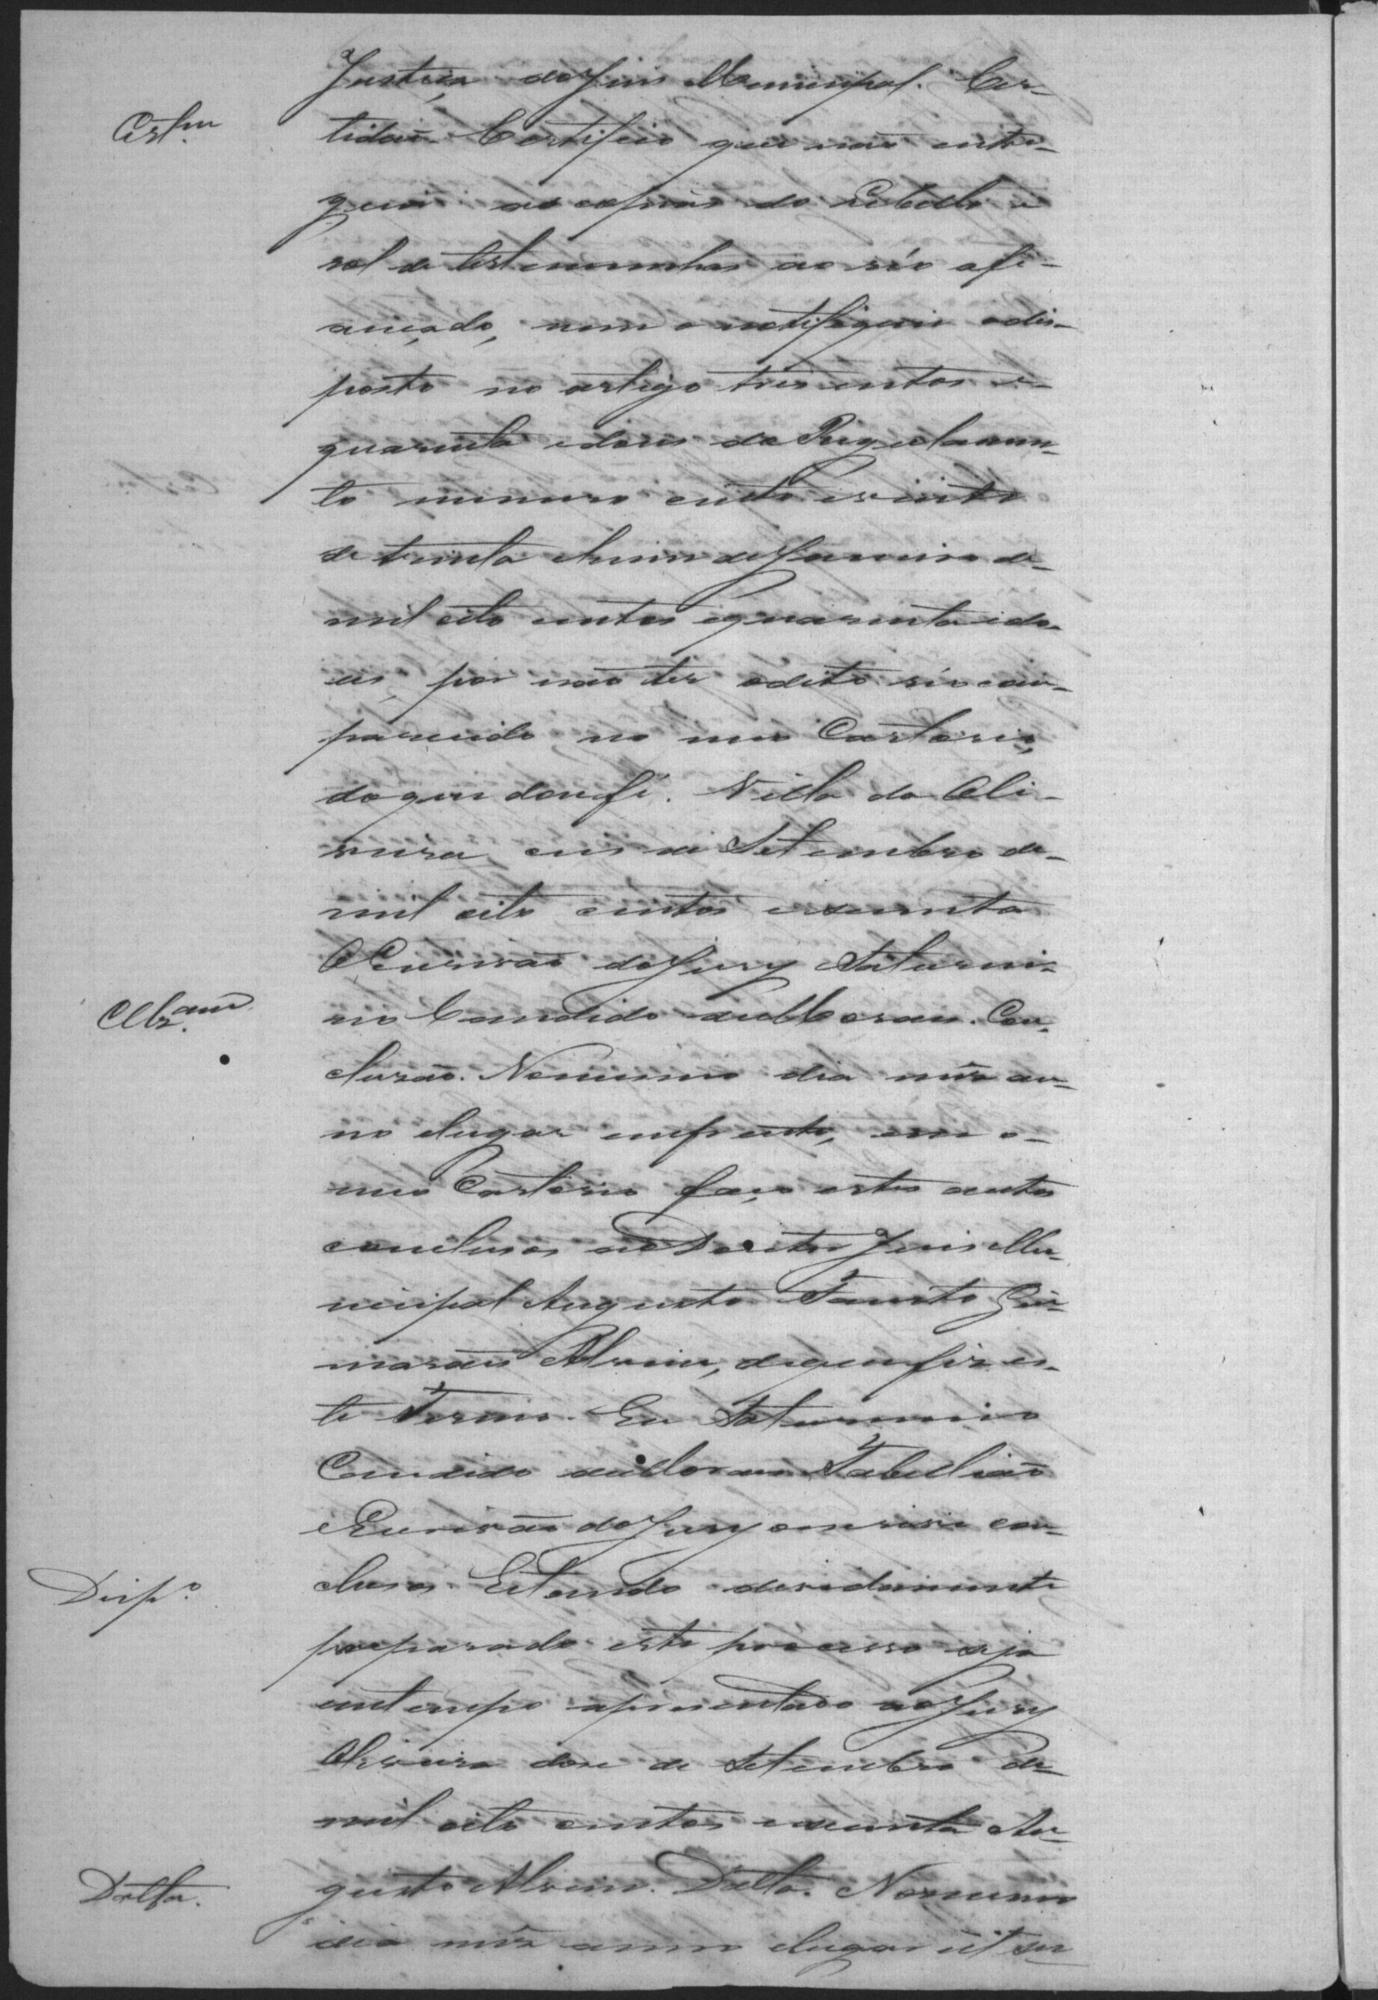 Justiça do Juis Municipal. Cer-
Cert.am
tidaõ. Certifico que naõ entre-
guei as copias do Libello e
rol de testemunhas ao réo afi-
ançado, nem o notifiquei o dis-
posto no artigo tresentos e
quarenta e dous do Regulamen-
to numero cento e vinte
de trinta e hum de Janeiro de
mil oito centos e quarenta e do-
us, por naõ ter o dito réo com-
parecido no meu Cartorio,
do que dou fé. Villa da Oli-
veira, de Setembro de
mil oito centos e secenta
O Escrivaõ do Jury Saturni-
no Candido de Moraes. Con-
Clz.am
clusaõ. No mesmo dia mês an-
no e lugar em o
meu Cartorio faço estes autos
conclusos ao Doutor Juis Mu-
nicipal Augusto Fausto Gui-
marães Alvim, do que fiz es-
te Termo. Eu Saturnino
Candido de Moraes Tabelliaõ
e Escrivaõ do Jury o escrevi con-
Desp.o
clusos. Estando devidamente
preparado este processo seja
em tempo apresentado ao Jury
Oliveira dose de Setembro de
mil oito centos e secenta Au-
Datta.
gusto Alvim. Datta. No mesmo
dia mês anno e lugar ut su